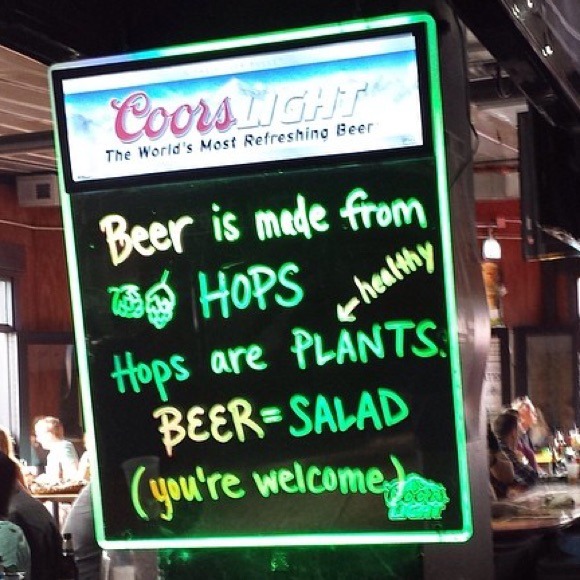 Coors LIGHT
The World's Most Refreshing Beer
Beer is made from
HOPS
healthy
Hops are PLANTS.
BEER=SALAD
(you're welcome)
Coors
LIGHT